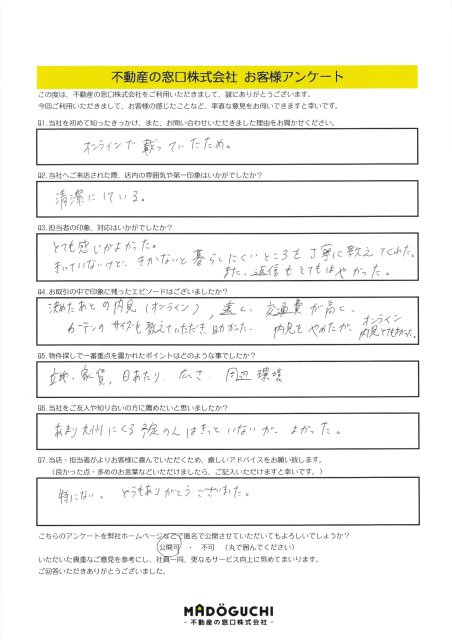 不動産の窓口株式会社 お客様アンケート
この度は、不動産の窓口株式会社をご利用いただきまして、誠にありがとうございます。
今回ご利用いただきまして、お客様の感じたことなど、率直な意見をお伺いできますと幸いです。
Q1.当社を初めて知ったきっかけ、また、お問い合わせいただきました理由をお聞かせください。
オンラインで載っていたため。
Q2.当社へご来店された際、店内の雰囲気や第一印象はいかがでしたか？
清潔にしている。
Q3.担当者の印象、対応はいかがでしたか？
とても感じがよかった。
きいていないけど、きかないと暮らしにくいところを丁寧に教えてくれた。
また、返信もとてもはやかった。
Q4.お取引の中で印象に残ったエピソードはございましたか？
決めたあとの内見(オンライン)、遠く、交通費が高く、
カーテンのサイズも教えていただき、助かった。 内見をやめたが、オンライン
内見できた。
Q5.物件探しで一番重点を置かれたポイントはどのような事でしたか？
立地、家賃、日あたり、広さ、周辺環境
Q6.当社をご友人や知り合いの方に薦めたいと思いましたか？
あまり九州にくる予定の人はきっといないが、よかった。
Q7.当店・担当者がよりお客様に喜んでいただくため、厳しいアドバイスをお願い致します。
（良かった点・多めのお言葉などいただけましたら、ご記入いただけますと幸いです。）
特にない。 どうもありがとうございました。
こちらのアンケートを弊社ホームページなどで匿名で公開させていただいてもよろしいでしょうか？
公開可 ・ 不可 （丸で囲んでください）
いただいた貴重なご意見を参考にし、社員一同、更なるサービス向上に努めてまいります。
ご回答いただきありがとうございました。
MADOGUCHI
- 不動産の窓口株式会社 -